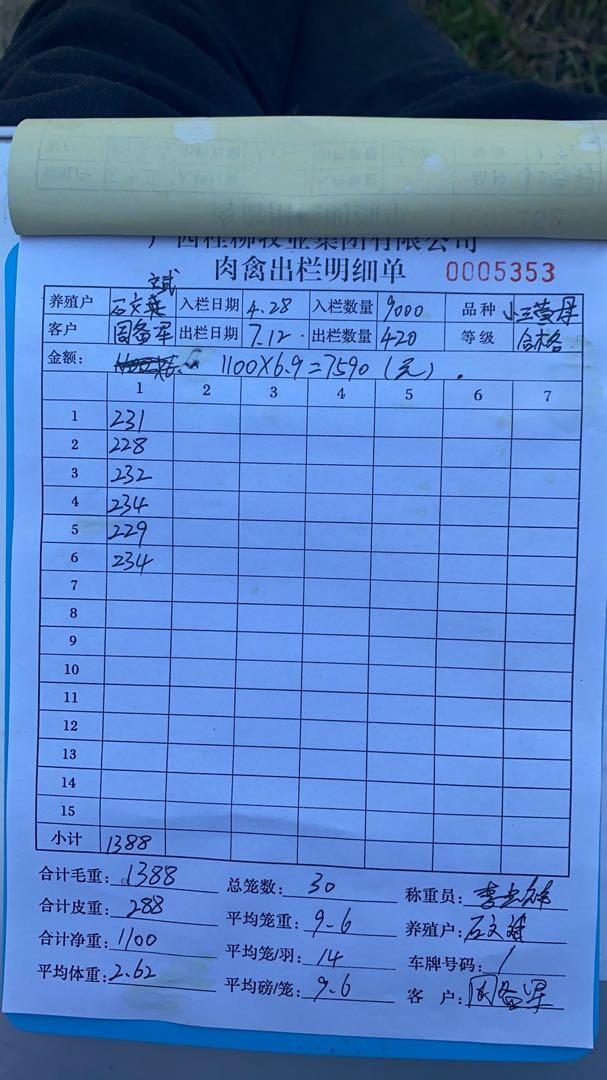 广西桂柳牧业集团有限公司
肉禽出栏明细单 0005353
斌
养殖户 石文 入栏日期 4.28 入栏数量 9000 品种 小三黄母
客户 周备军 出栏日期 7.12 出栏数量 420 等级 合格
金额: 1100×6.9=7590(元).
1 2 3 4 5 6 7
1 231
2 228
3 232
4 234
5 229
6 234
7
8
9
10
11
12
13
14
15
小计 1388
合计毛重: 1388 总笼数: 30 称重员:
合计皮重: 288 平均笼重: 9.6 养殖户: 石文斌
合计净重: 1100 平均笼/羽: 14 车牌号码: /
平均体重: 2.62 平均磅/笼: 9.6 客 户: 周备军